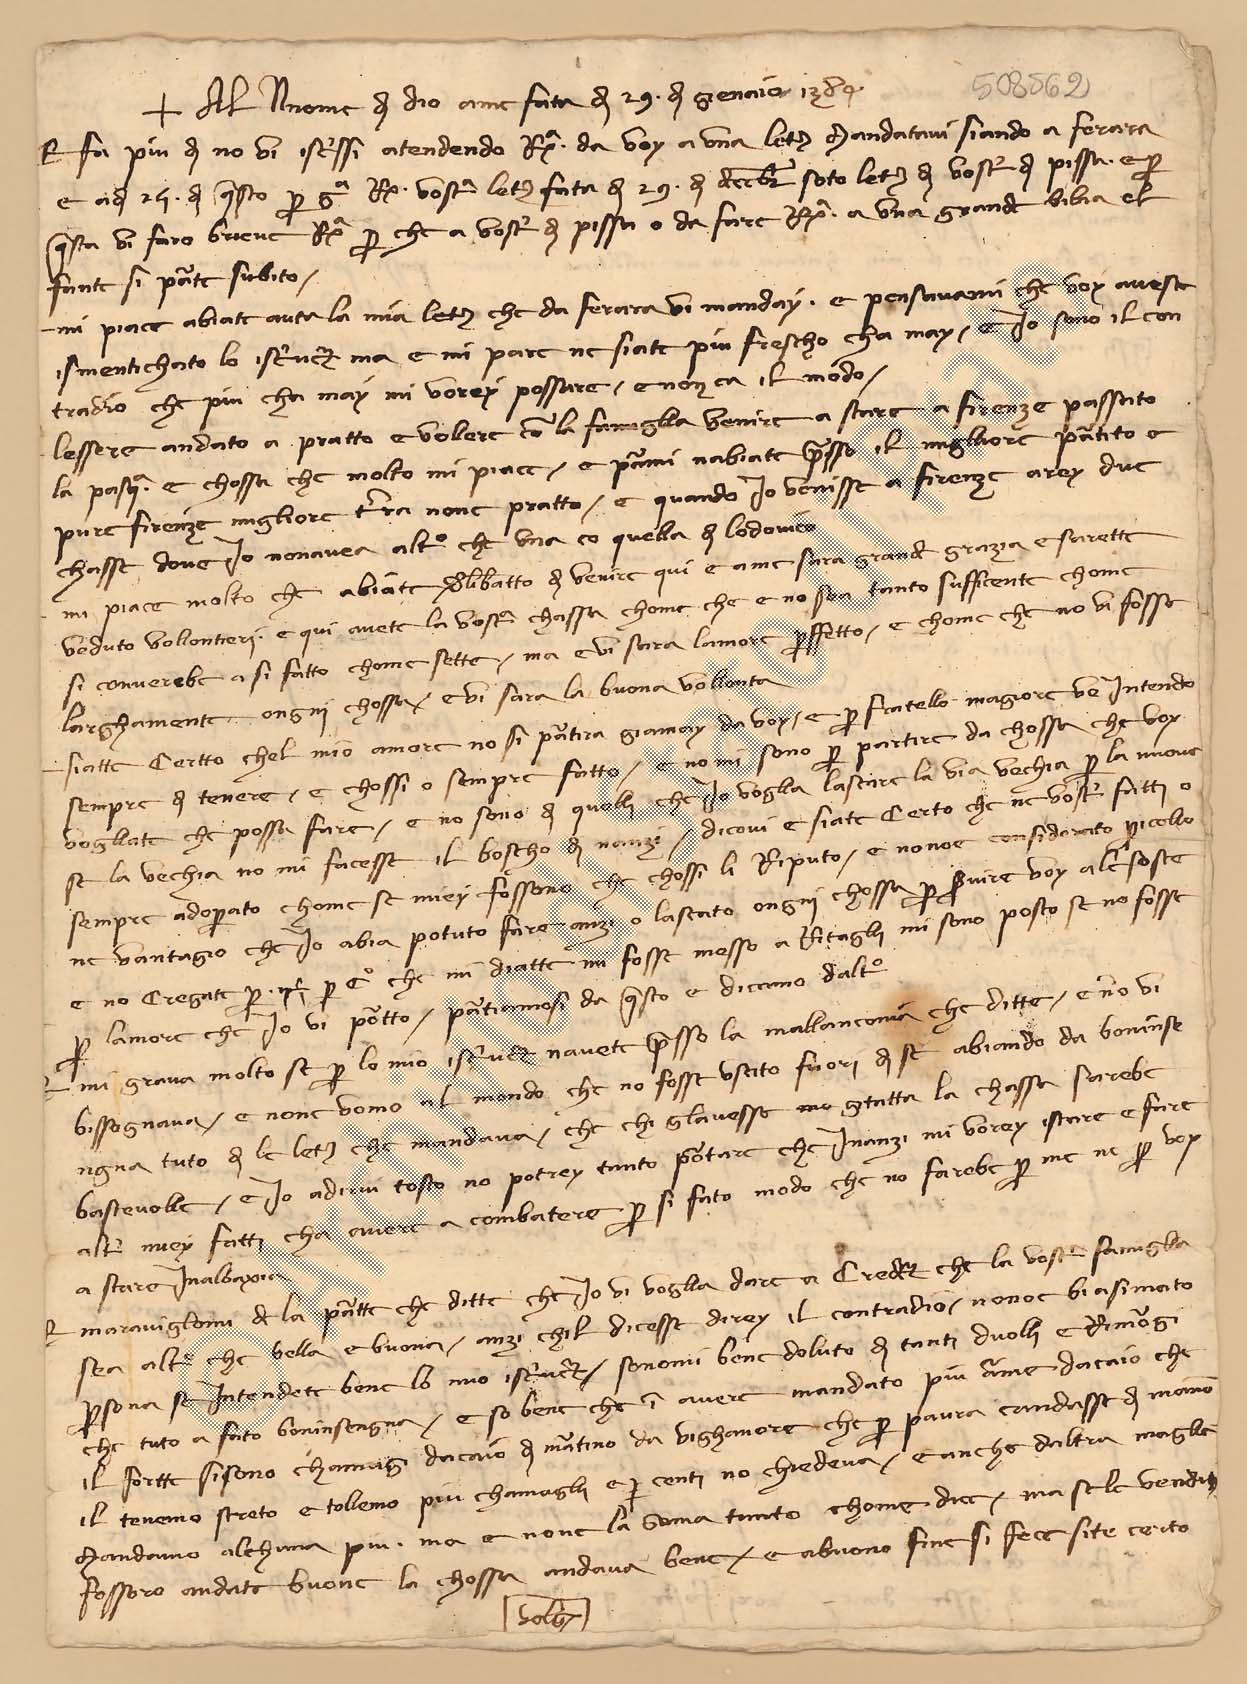 + Al Nnome di dio ame fata di 29. di genaio 1384.
508562
E fa piu di no vi iscrissi atendendo Rxa. da voy a una letta mandatavi siando a ferara
e adi 24. di questo per ga Rx. vostra letta fata di 29. di decenbre soto letta di vostri di pissa. e per
questa vi faro brieve Rxa per che a vostri di pissa o da fare Rxa. a una grande bibia el
fante si parte subito/
mi piace abiate auta la mia letta che da ferara vi manday. e pensavami che voy aveste
ismentichato lo iscrivere ma e mi pare ne siate piu frescho cha may/ e Io sono il con
tradio che piu cha may mi vorey possare/ e non ca il modo/
lessere andato a pratto e volere con la famiglia venire a stare a firenze passato
la pasqua. e chossa che molto mi piace/ e parmi nabiate presso il migliore partito e
pure firenze migliore terra none pratto/ e quando Io venisse a firenze arey due
chasse dove Io nonavea altro che una co quella di lodovico
mi piace molto che abiate dilibatto di venire qui e ame sara grande grazia e sarette
veduto vollontieri. e qui avete la vostra chassa chome che e no sea tanto sufficente chome
si converebe a si fatto chome sette/ ma e vi sara lamore perffetto/ e chome che no vi fosse
larghamente ongni chossa/ e vi sara la buona vollonta
siatte Certto chel mio amore no si partira giamay da voy/ e per fratello magiore ve Intendo
sempre di tenere/ e chossi o sempre fatto/ e no mi sono per partire da chossa che voy
vogliate che possa fare/ e no sono di quelli che Io voglia lasciare la via vechia per la nuove
se la vechia no mi facesse il boscho di nanzi/ dicovi e siate Certo che ne vostri fatti o
sempre adoperato chome se miey fossono che chossi li Riputo/ e nonoe considerato piccollo
ne vantagio che Io abia potuto fare anzi o lasciato ongni chossa per servire voy altri soste
e no Cregiate per per Co che mi diatte mi fosse messo a Ritagli mi sono posto se no fosse
per lamore che Io vi portto/ partiamosi da questo e diciamo daltro
mi grava molto se per lo mio iscrivere navete presso la mallanconia che ditte/ e no vi
bissognava/ e none uomo al mondo che no fosse uscito fuori di se abiando da boninse
ngna tuto di le lette che mandava/ che chi glavesse me gitatta la chassa sarebe
bastevolle/ e Io adirvi tosto no potrey tanto portare che Inanzi mi vorey istare e fare
altri miey fatti cha avere a combatere per si fato modo che no farebe per me ne per voy
a stare Inalbaxia
maravigliomi de la partte che ditte che Io vi voglia dare a Credere che la vostra famiglia
sea altro che bella e buona/ anzi chil dicesse direy il contradio/ nonoe biasimato
persona se Intendete bene lo mio iscrivere/ sonomi bene doluto di tanti duolli e Rimorgi
che tuto a fato boninsengna/ e so bene che i avere mandato piu arme dacaio che
il fortte si sono chamagi dacaio di martino da vighamore che per paura candasse di mano
il tenemo streto e tollemo piu chamagli e per centi no chiedeva/ e anche daltra maglie
mandamo alchuna piu. ma e none la soma tanto chome dice/ ma se le vendite
fossoro andate buone la chossa andava bene/ e abuono fine si fece site certo